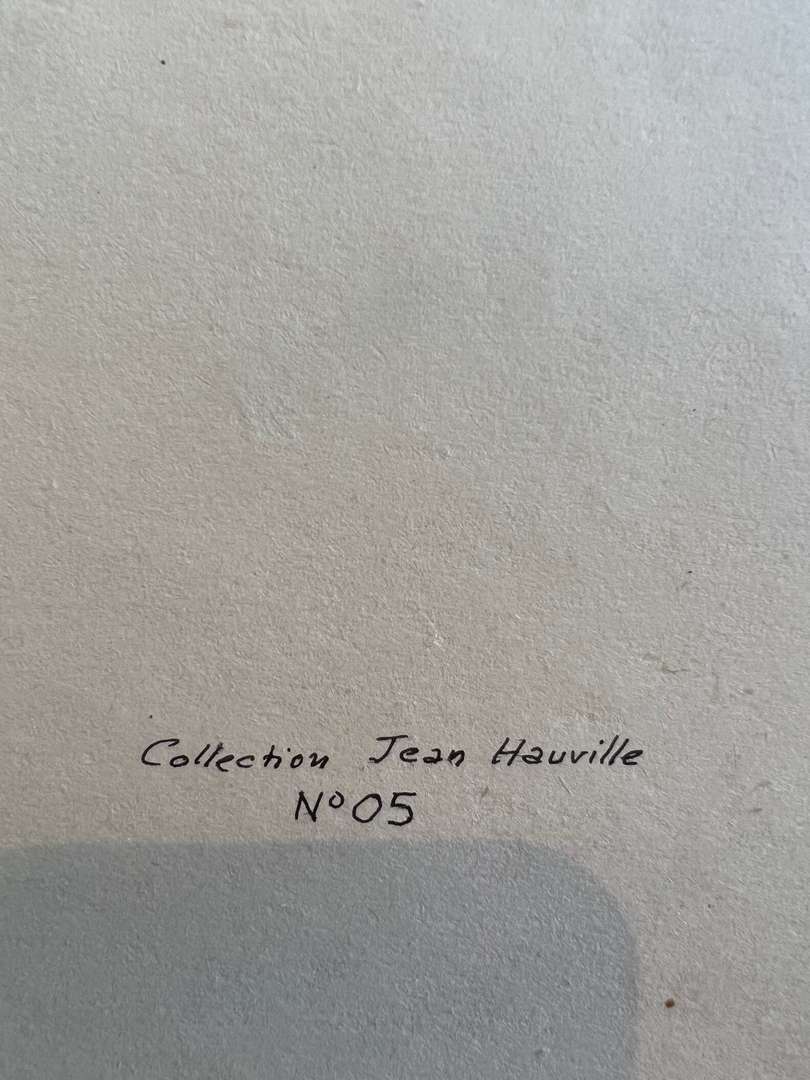 Collection Jean Hauville
N° 05